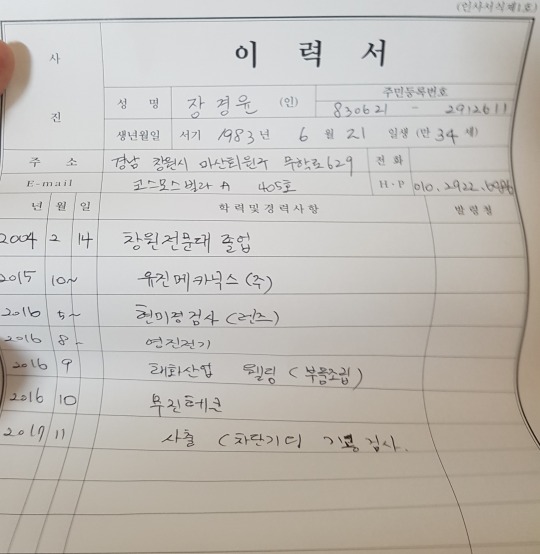 (인사서식제1호)
이 력 서
사
진
성 명 장경윤 (인)
주민등록번호
830621 - 2912611
생년월일 서기 1983년 6월 21일생 (만 34 세)
주 소 경남 창원시 마산회원구 무학로629 전 화
E-mail 코스모스빌라 A 405호 H·P 010.2922.
년 월 일 학력및경력사항 발령청
2004 2 14 창원전문대 졸업
2015 10~ 유진메카닉스(주)
2016 5~ 현미경검사 (렌즈)
2016 8- 연진전기
2016 9 태화산업 웰링 (부품조립)
2016 10 무진테크
2017 11 사출 (차단기 검사.